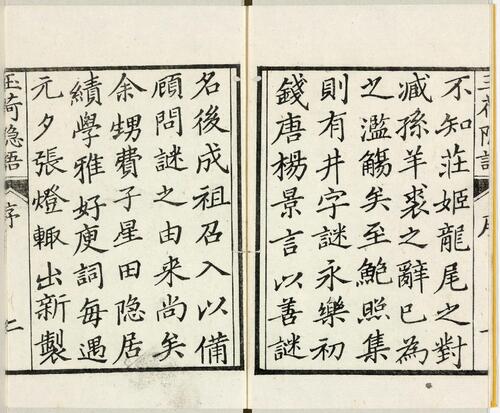 不知莊姬龍尾之對
臧孫羊裘之辭已為
之濫觴矣至鮑照集
則有井字謎永樂初
錢唐楊景言以善謎
名後成祖召入以備
顧問謎之由来尚矣
余甥費子星田隐居
績學雅好廋詞每遇
元夕張燈輙出新製
玉荷隐語
序
二